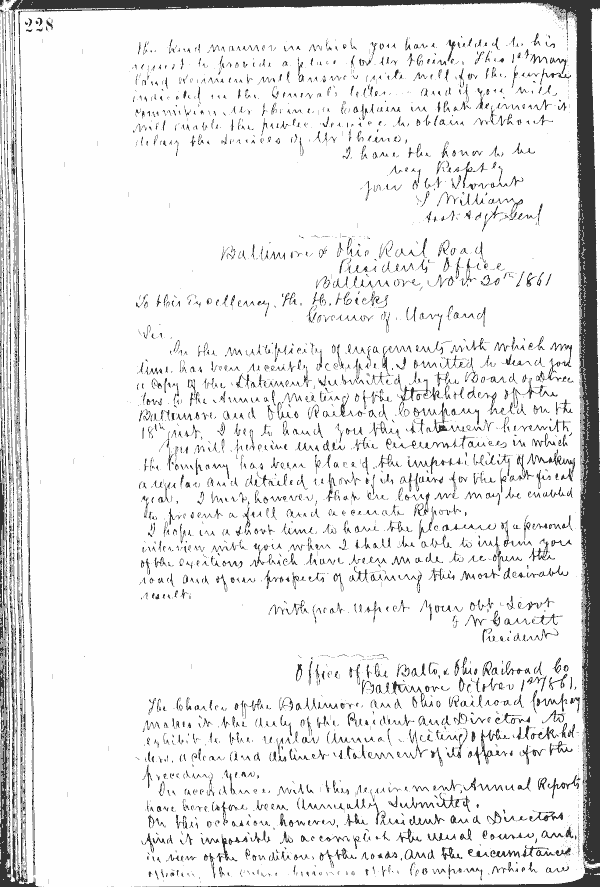 228
the kind manner in which you have yielded to his
request to provide a place for Mr Heine. This 1st Mary
land regiment will answer quite well for the purpose
indicated in the General's letter and if you will
commission Mr Heine a Captain in that regiment it
will enable the public service to obtain without
delay the services of Mr Heine.
I have the honor to be
very Resptly
your Obt Servant
S Williams
Asst Adgt Genl
Baltimore & Ohio Rail Road
Presidents Office
Baltimore, Nov 20th 1861
To His Excellency, Th. H. Hicks
Governor of Maryland
Sir
In the multiplicity of engagements with which my
time has been recently occupied, I omitted to send you
a copy of the Statement, submitted by the Board of Direc
tors to the Annual Meeting of the Stockholders of the
Baltimore and Ohio Railroad Company held on the
18th inst. I beg to hand you this statement herewith
You will perceive under the circumstances in which
the Company has been placed the impossibility of making
a regular and detailed report of its affairs for the past fiscal
year. I trust, however, that ere long we may be enabled
to present a full and accurate Report.
I hope in a short time to have the pleasure of a personal
interview with you when I shall be able to inform you
of the exertions which have been made to re-open the
road and of our prospects of attaining this most desirable
result.
With great respect Your obt Servt
J W Garrett
President
Office of the Balto. & Ohio Railroad Co
Baltimore October 1st 1861.
The Charter of the Baltimore and Ohio Railroad Company
makes it the duty of the President and Directors to
exhibit to the regular Annual Meeting of the Stockhol
ders, a clear and distinct statement of its affairs for the
preceding year.
In accordance with this requirement, Annual Reports
have heretofore been Annually Submitted.
On this occasion, however, the President and Directors
find it impossible to accomplish the usual course, and,
in view of the condition of the road, and the circumstances
the business of the Company, which are